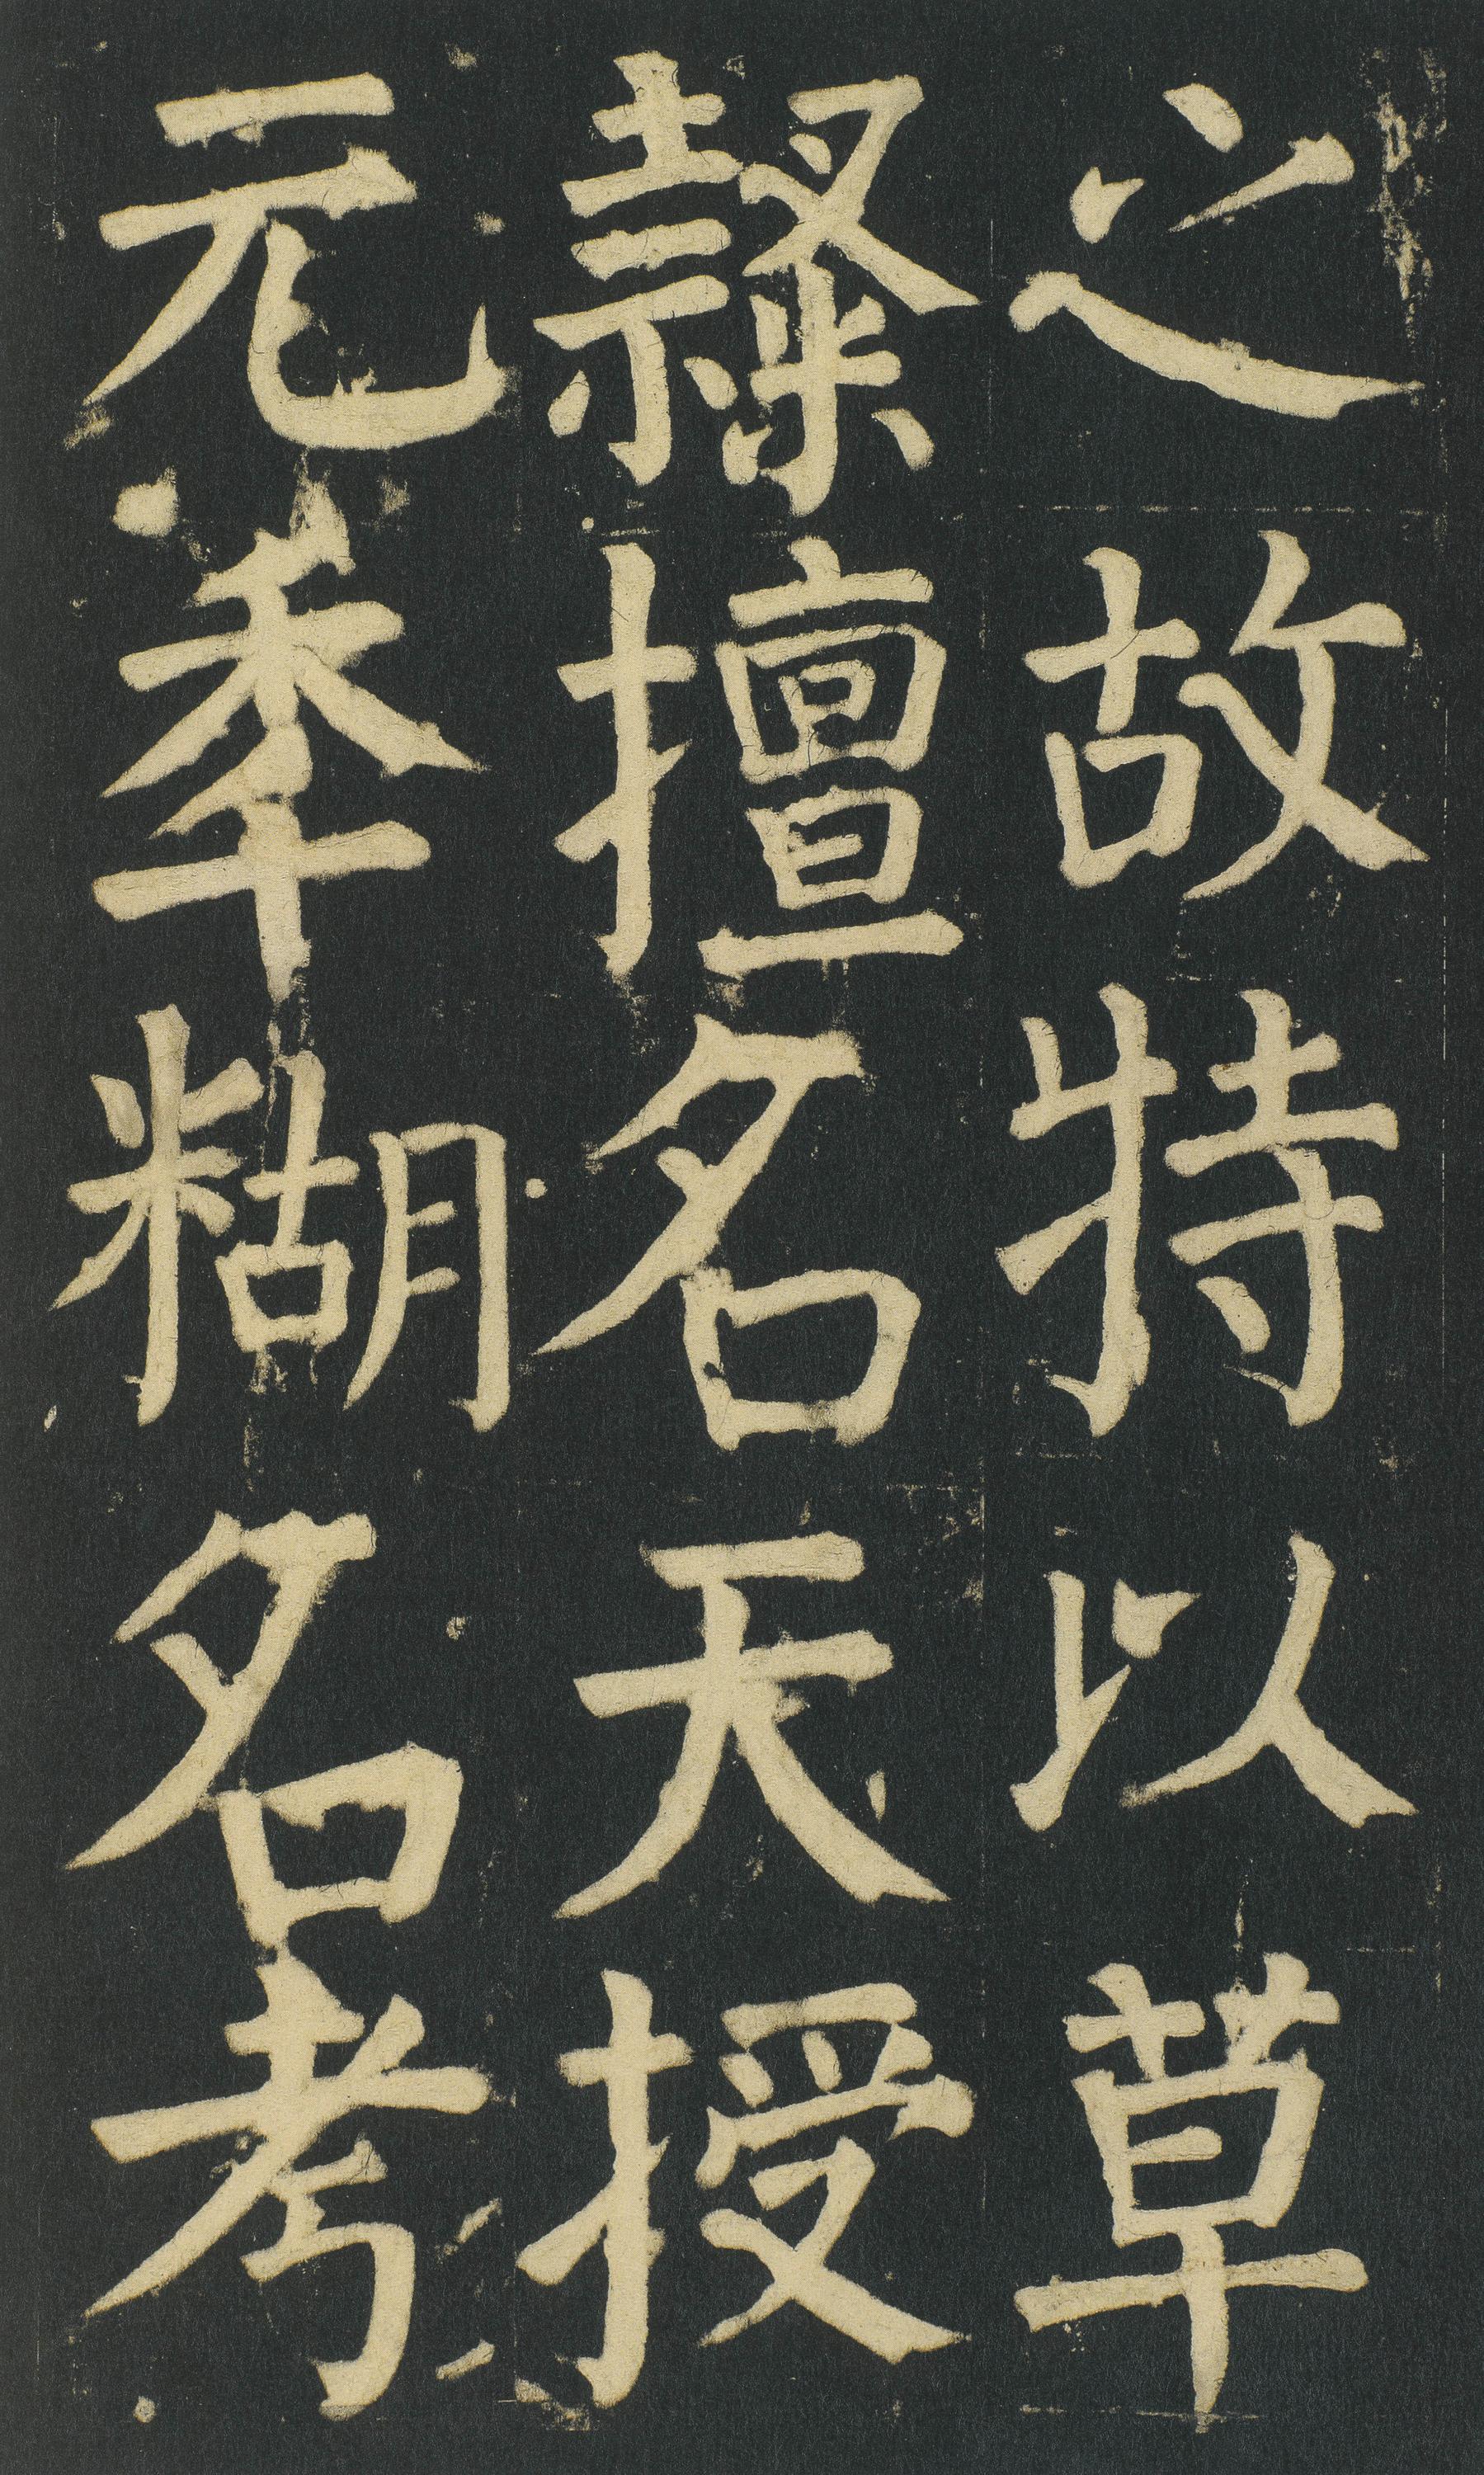 之故特以草
隸擅名天授
元季糊名考